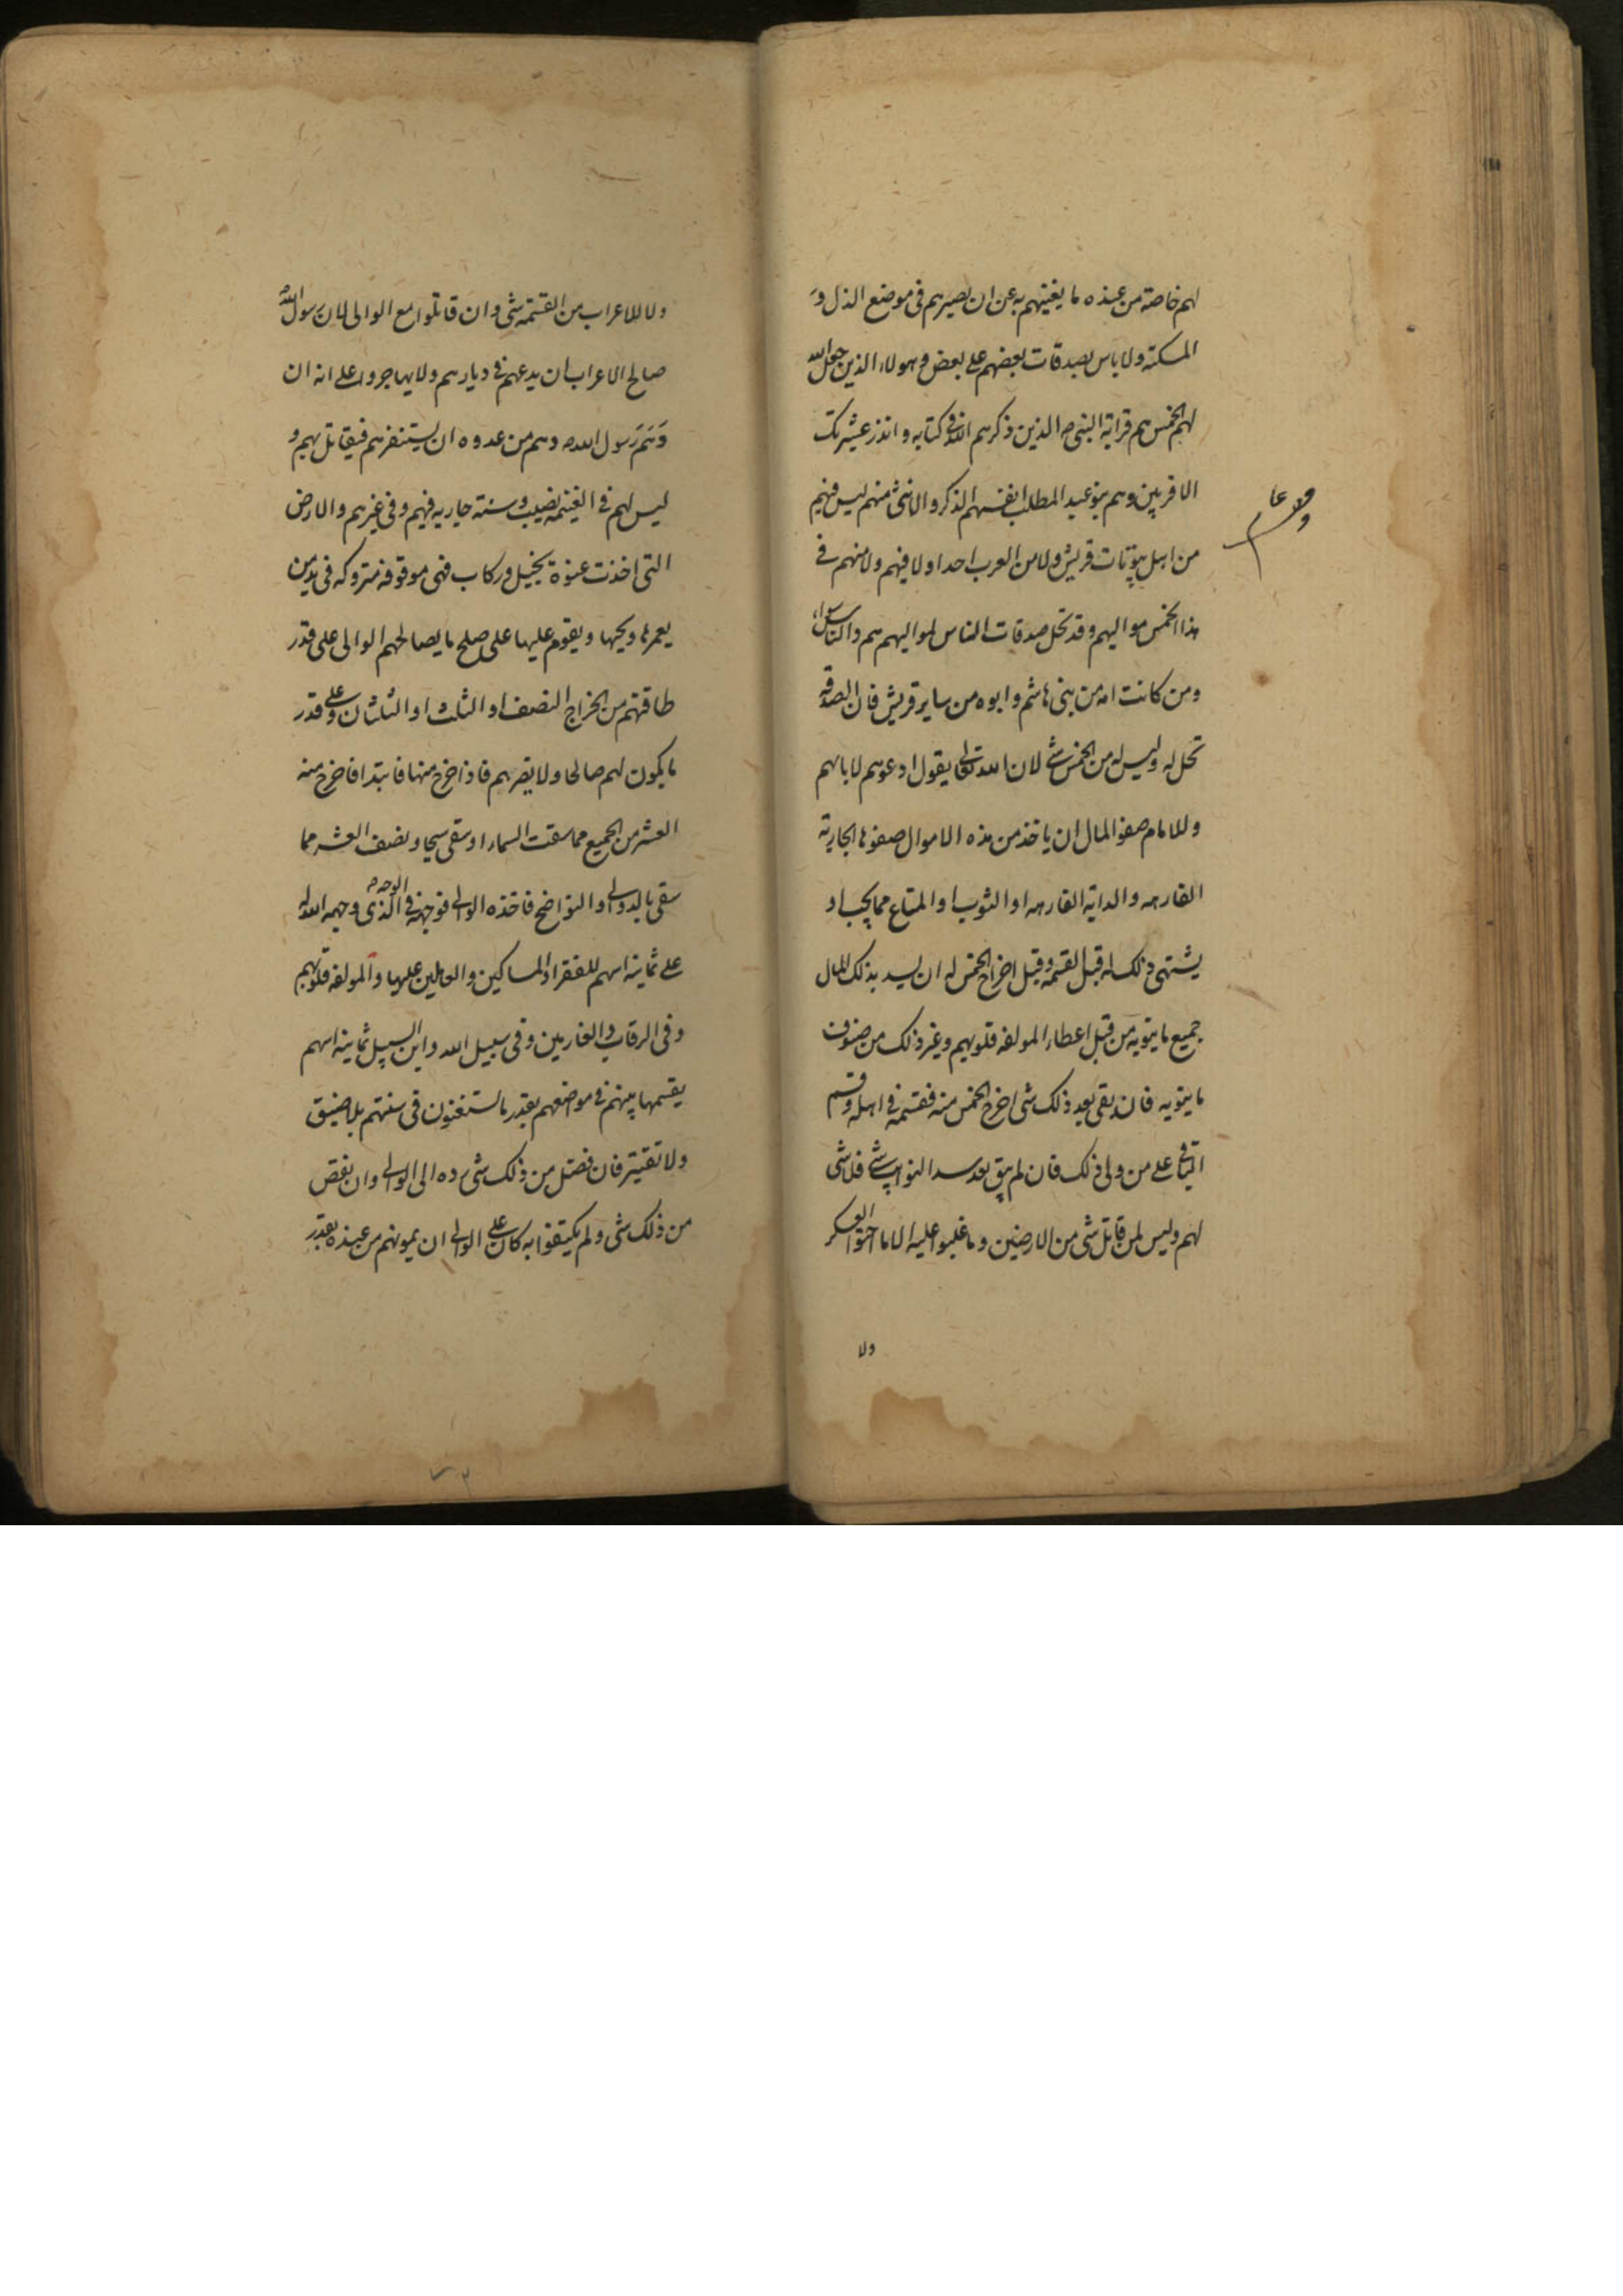 لهم خاصة من عنده ما يغنيهم به عن ان يصيرهم فى موضع الذل و
المسكنة ولا باس بصدقات بعضهم على بعض وهولاء الذين جعل الله
لهم الخمس هم قرابة النبى ص الذين ذكرهم الله فى كتابه و انذر عشيرتك
الاقربين وهم بنو عبد المطلب انفسهم الذكر والانثى منهم ليس فيهم
من اهل بيوتات قريش ولا من العرب احدا ولا فيهم ولا منهم فى
هذا الخمس مواليهم وقد تحل صدقات الناس لمواليهم هم والناس سواء
ومن كانت امه من بنى هاشم وابوه من ساير قريش فان الصدقة
تحل له وليس له من الخمس شى لان الله تعالى يقول ادعوهم لابائهم
وللامام صفو المال ان ياخذ من هذه الاموال صفوها الجارية
الفارهه والدابة الفارهه او الثوب او المتاع مما يحب او
يشتهى ذلك له قبل القسمه وقبل اخراج الخمس له ان يسد بذلك المال
جميع ما ينوبه من قبل اعطاء المولفه قلوبهم وغير ذلك من صنوف
ما ينوبه فان بقى بعد ذلك شى اخرج الخمس منه فقسمه فى اهله وقسم
الباقى على من ولى ذلك فان لم يبق بعد سد النوايب شى فلا شى
لهم وليس لمن قاتل شى من الارضين وما غلبوا عليه الا ما احتوا العسكر
ولا
ولا للاعراب من القسمة شى وان قاتلوا مع الوالى لان رسول الله
صالح الاعراب ان يدعهم فى ديارهم ولا يهاجروا على انه ان
دهم رسول الله ص دهم من عدوه ان يستنفرهم فيقاتل بهم و
ليس لهم فى الغنيمه نصيب وسنة جاريه فيهم وفى غيرهم والارض
التى اخذت عنوة بخيل وركاب فهى موقوفه متروكه فى يد من
يعمرها ويحيها ويقوم عليها على صلح ما يصالحهم الوالى على قدر
طاقتهم من الخراج النصف او الثلث او الثلثان وعلى قدر
ما يكون لهم صالحا ولا يضرهم فاذا خرج منها فابتدا فاخرج منه
العشر من الجميع مما سقت السماء او سقى سيحا ونصف العشر مما
سقى بالدوالى او النواضح فاخذه الوالى فوجهه فى الوجه الذى وجهه الله له
على ثمانية اسهم للفقراء والمساكين والعاملين عليها والمولفه قلوبهم
وفى الرقاب والغارمين وفى سبيل الله وابن السبيل ثمانية اسهم
يقسمها بينهم فى مواضعهم بقدر ما يستغنون فى سنتهم بلا ضيق
ولا تقتير فان فضل من ذلك شى رده الى الوالى وان نقص
من ذلك شى ولم يكتفوا به كان على الوالى ان يمونهم من عنده بقدر